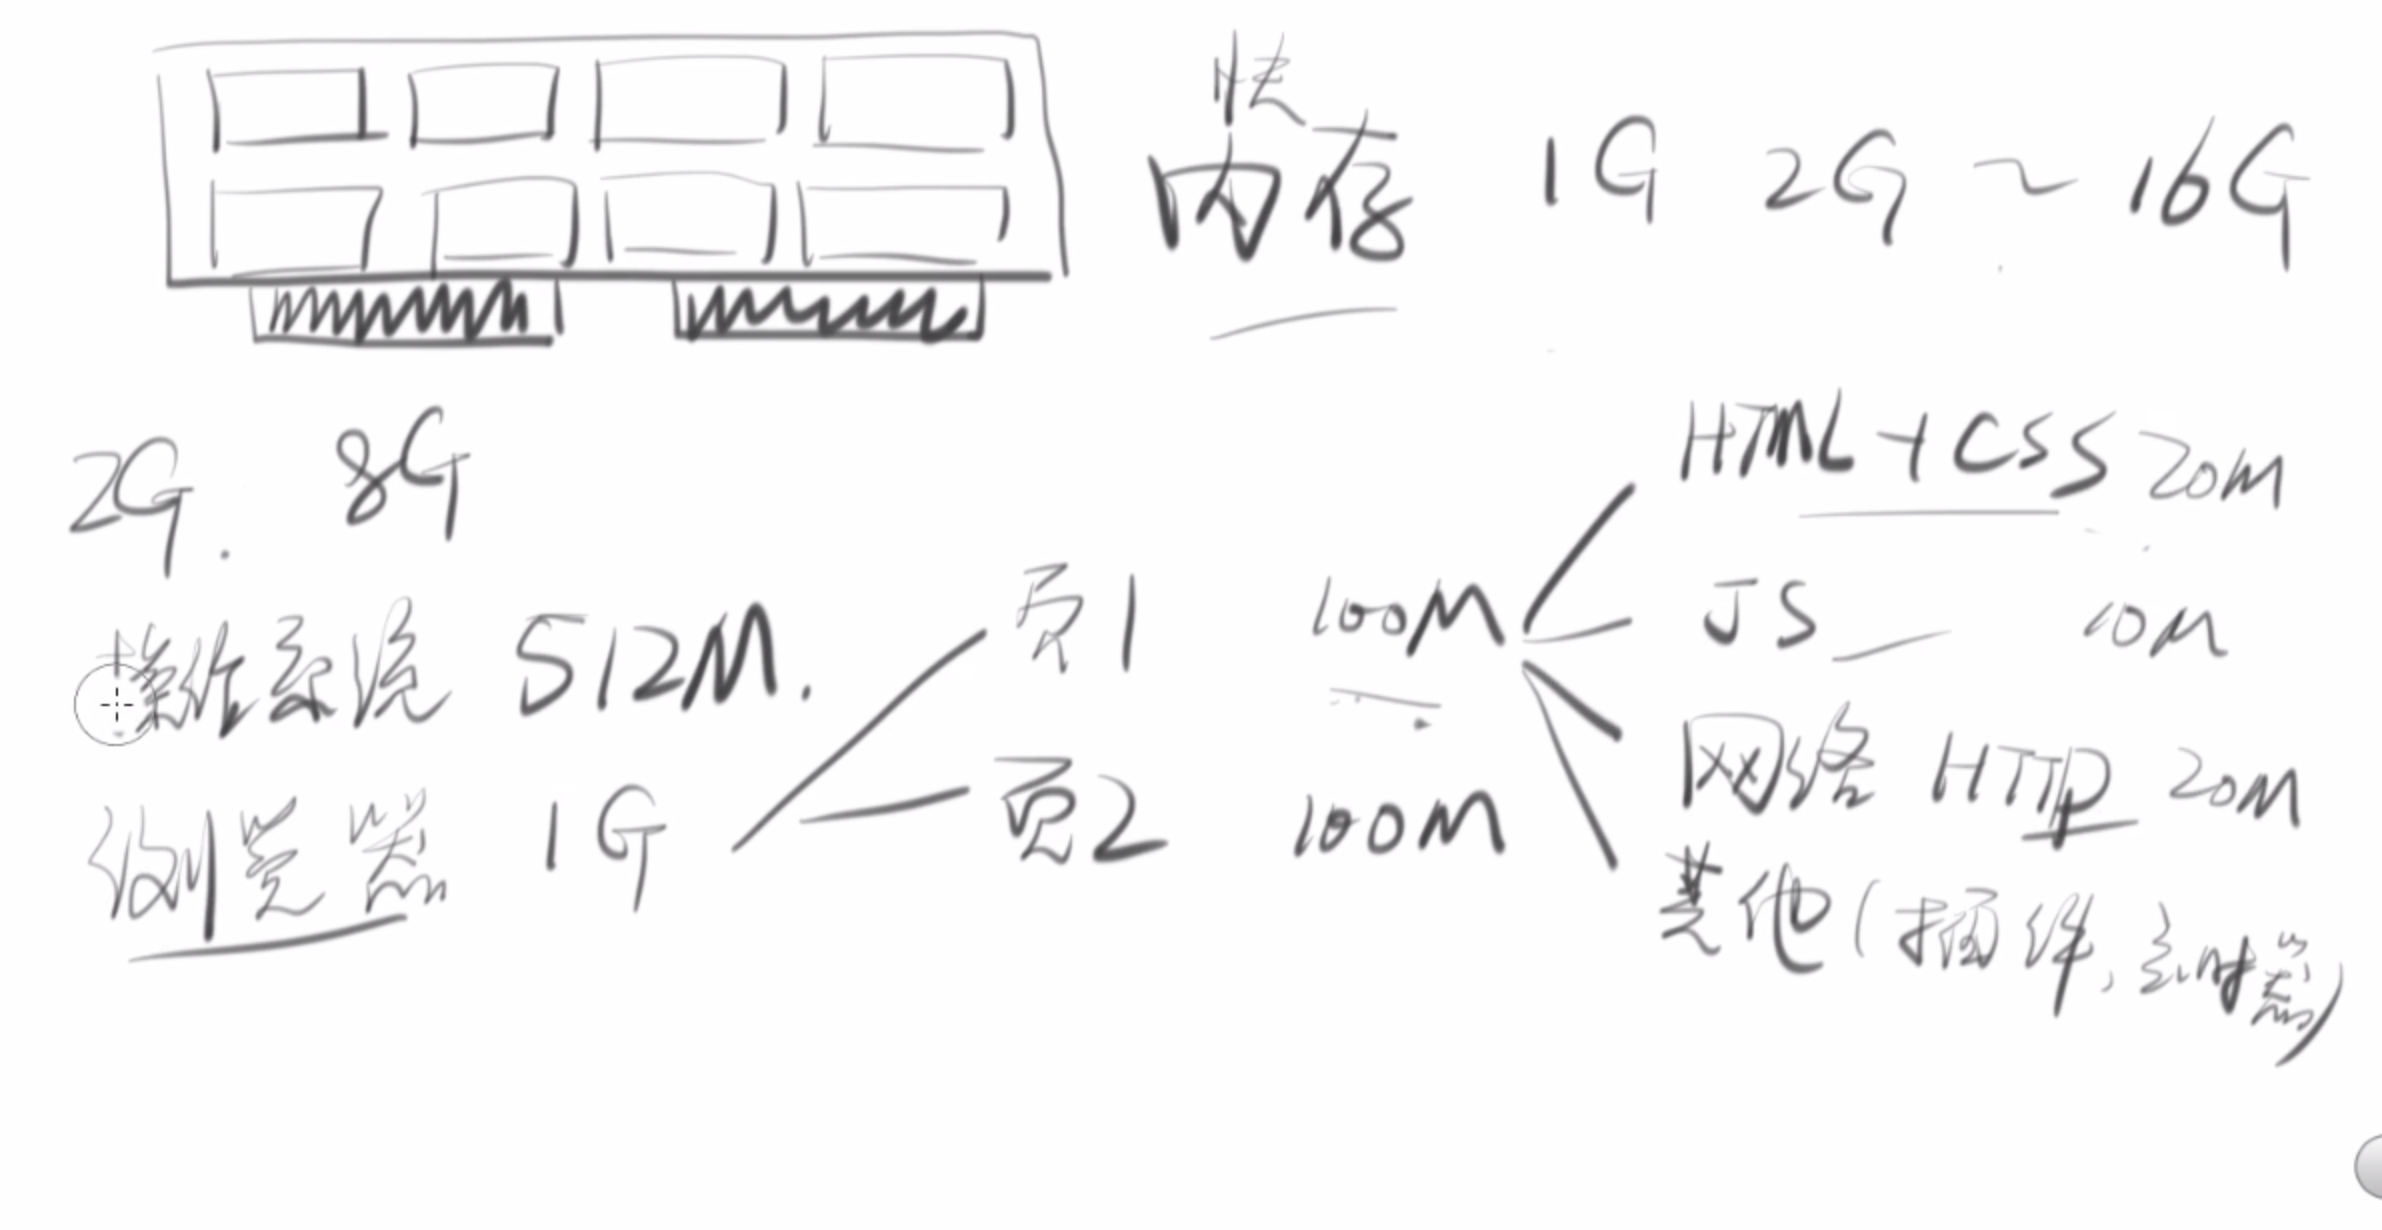 快
内存 1G 2G ~ 16G
2G. 8G
操作系统 512M.
浏览器 1G
页1 100M
页2 100M
HTML+CSS 20M
JS 10M
网络 HTTP 20M
其他(插件,